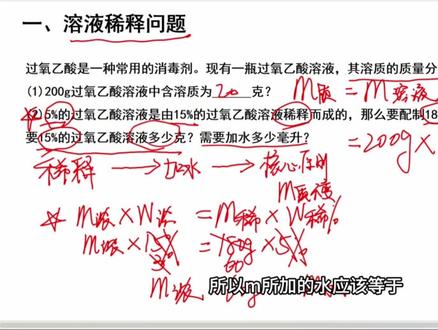 一、溶液稀释问题
过氧乙酸是一种常用的消毒剂。现有一瓶过氧乙酸溶液，其溶质的质量分
(1)200g过氧乙酸溶液中含溶质为 克？ m质 = m溶液
5%的过氧乙酸溶液是由15%的过氧乙酸溶液稀释而成的，那么要配制18
= 200g ×
要15%的过氧乙酸溶液多少克？需要加水多少毫升？
稀释 → 加水 → 核心原则
m质不变
☆ m浓 × W浓 = m稀 × W稀%
m浓 × 15% = 180g × 5%
60
m浓
所以m所加的水应该等于